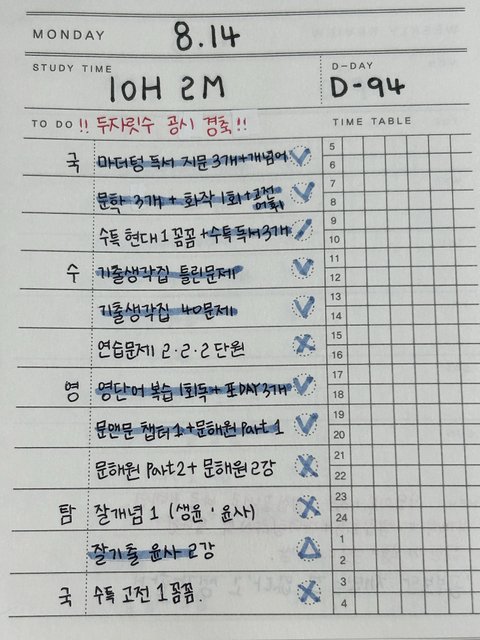 MONDAY 8.14
STUDY TIME D-DAY
10H 2M D-94
TO DO !! 두자릿수 공시 경축 !! TIME TABLE
국 마더텅 독서 지문 3개+개념어
문학 3개 + 화작 1회 + 고전어휘
수특 현대 1 꼼꼼 + 수특 독서 3개
수 기출생각집 틀린문제
기출생각집 40문제
연습문제 2·2·2 단원
영 영단어 복습 1회독 + 포DAY 3개
문앤문 챕터1 + 문해원 Part 1
문해원 Part2 + 문해원 2강
탐 잘개념 1 (생윤·윤사)
잘기출 윤사 2강
국 수특 고전 1 꼼꼼.
5
6
7
8
9
10
11
12
13
14
15
16
17
18
19
20
21
22
23
24
1
2
3
4